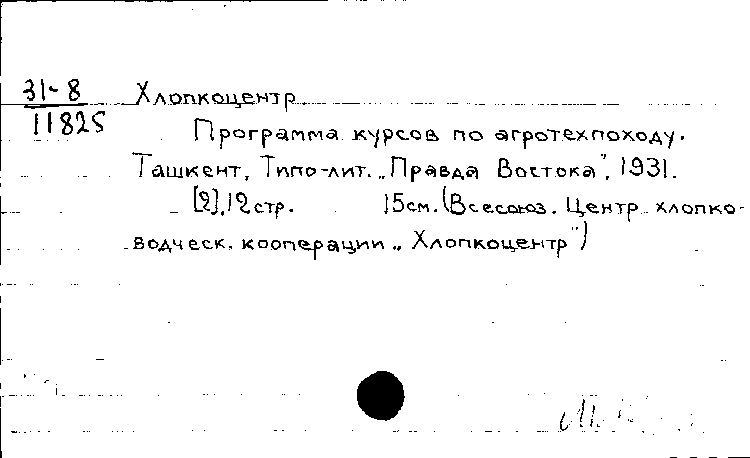 31-8 Хлопкоцентр
11825
Программа курсов по агротехпоходу.
Ташкент, Типо-лит. „Правда Востока", 1931.
[2], 12 стр. 15 см. (Всесоюз. Центр хлопко-
водческ. кооперации „Хлопкоцентр")